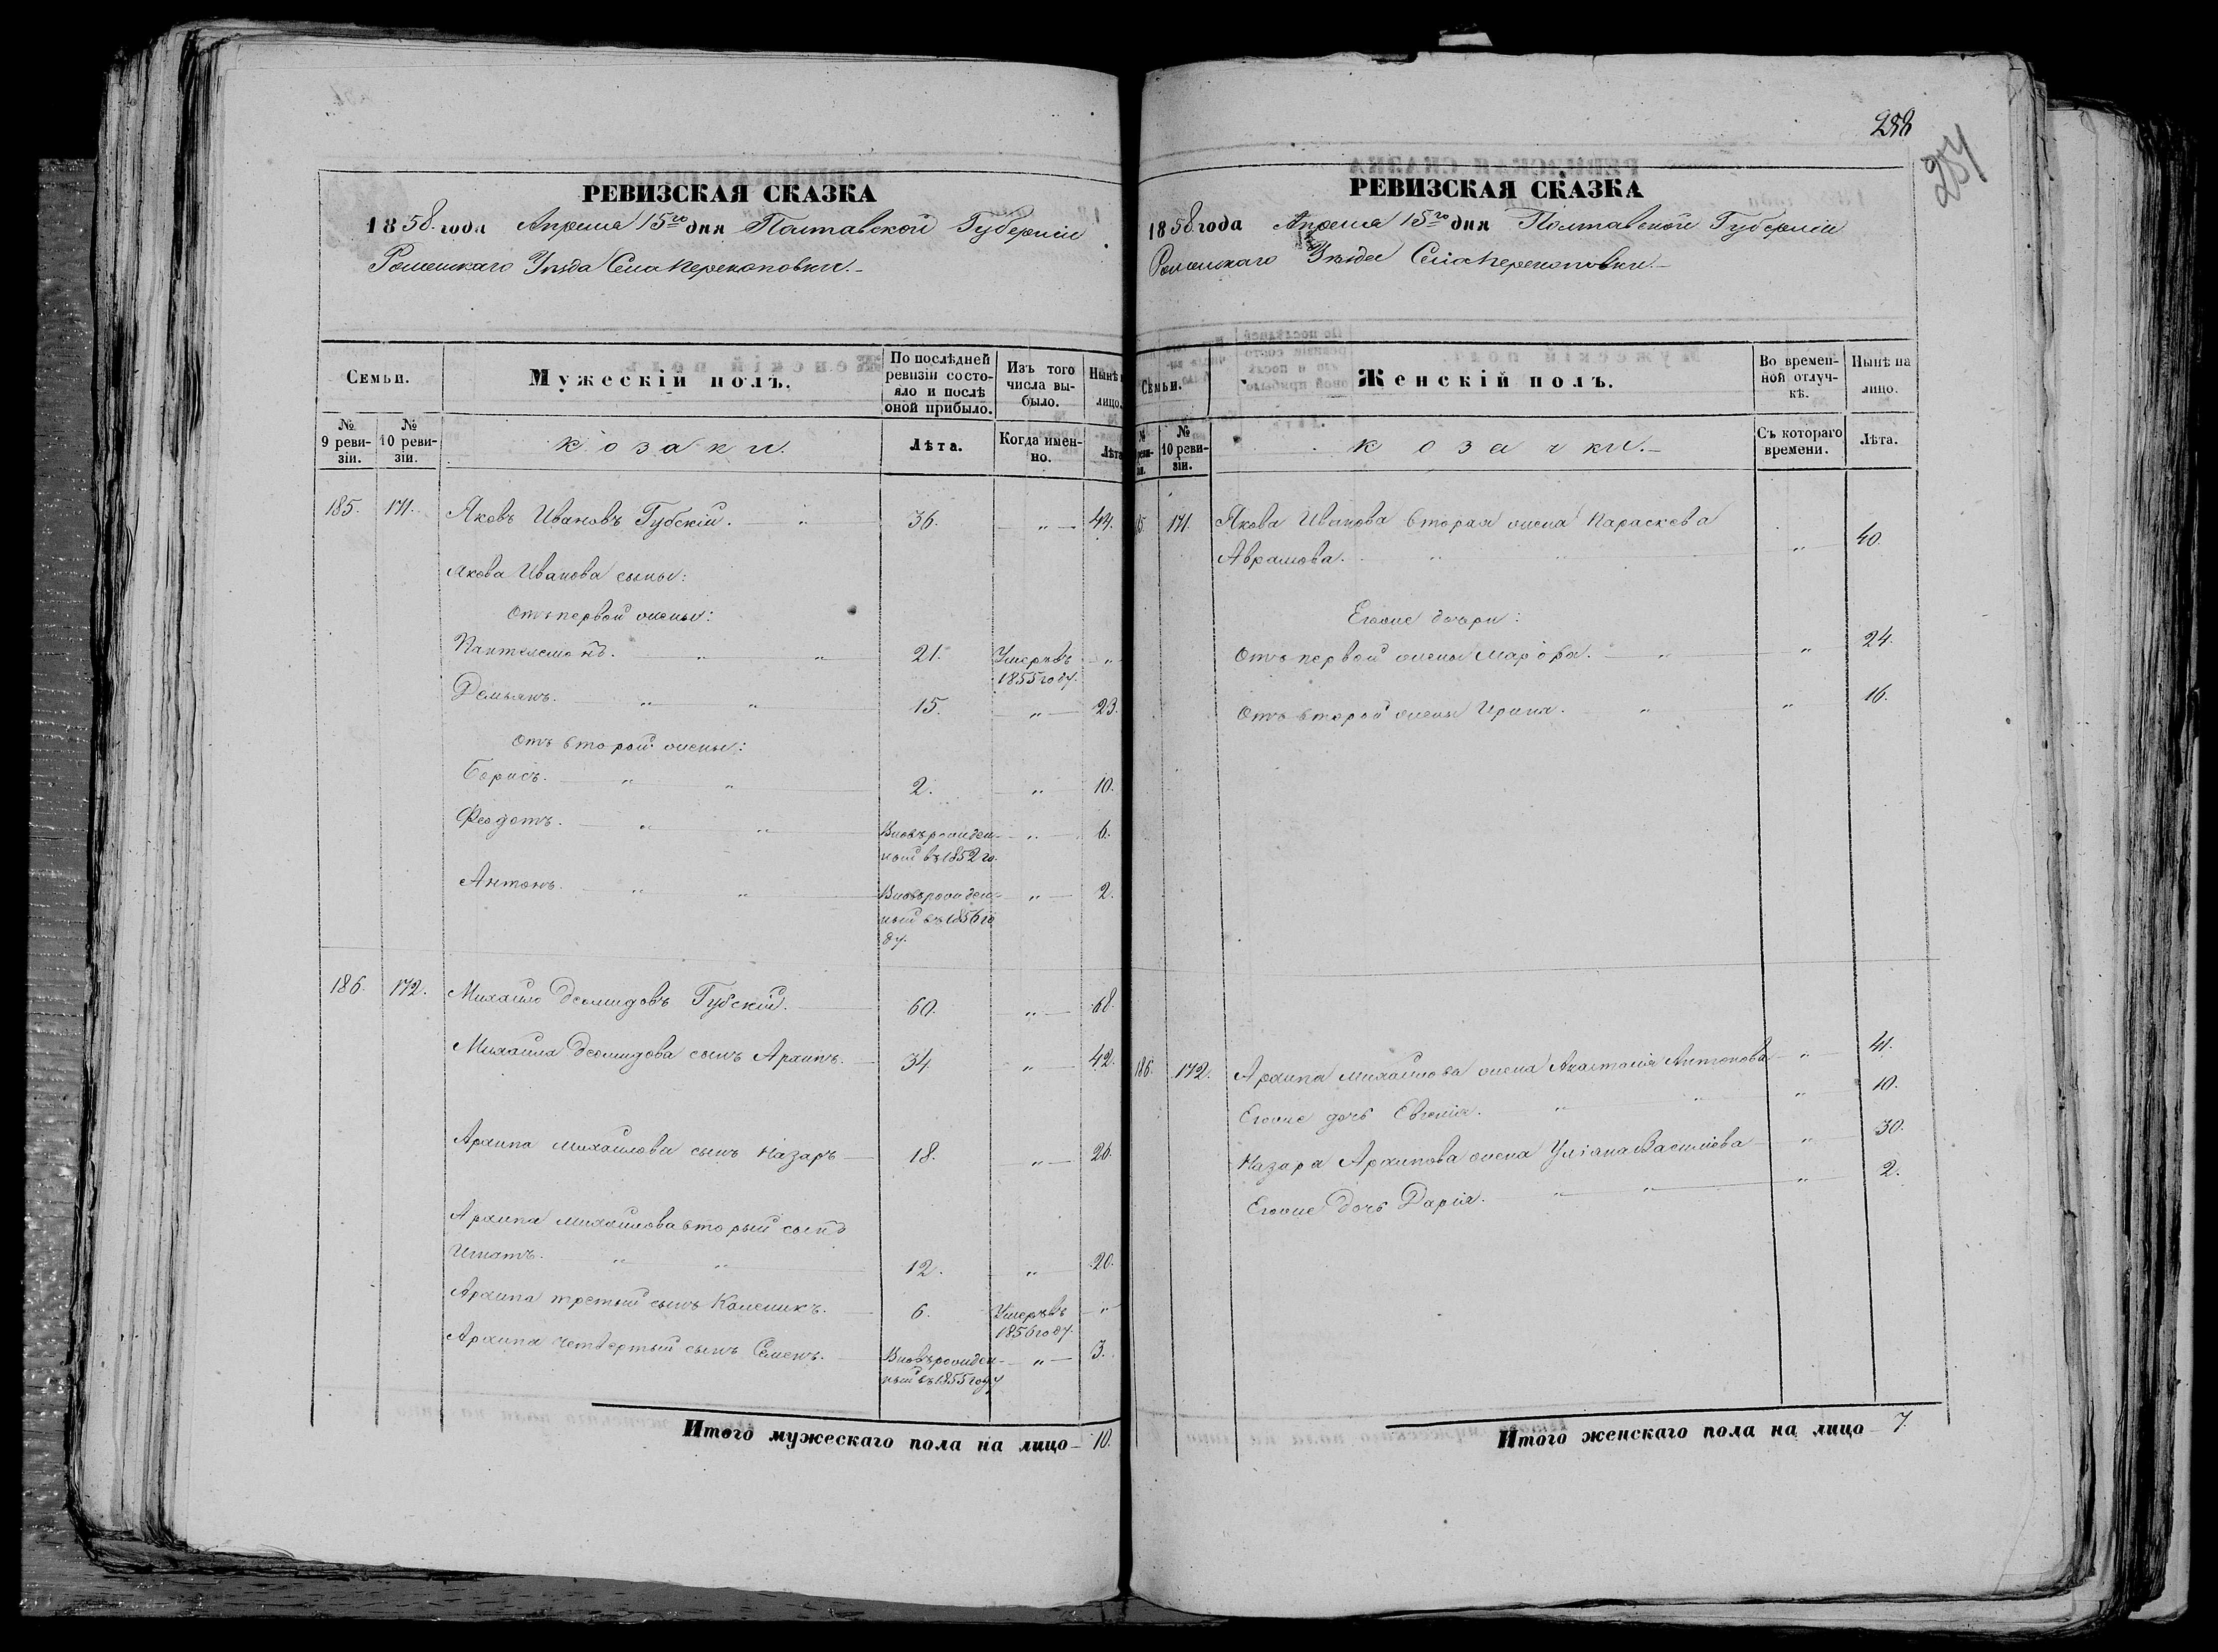 РЕВИЗСКАЯ СКАЗКА
1858. года Апреля 15го дня Полтавской Губерніи
Роменскаго Уѣзда Села Перекоповки.
Семьи.
Мужескій полъ.
По послѣдней
ревизіи состо-
яло и послѣ
оной прибыло.
Изъ того
числа вы-
было.
Нынѣ
лицо.
№
9 реви-
зіи.
№
10 реви-
зіи.
козаки.
Лѣта.
Когда имен-
но.
Лѣта
185. 171. Яковъ Ивановъ Губскій. " 36. " 44.
Якова Иванова сыны:
Отъ первой жены:
Пантелемонъ. " " 21. Умеръ въ "
1855 году.
Демьянъ. " " 15. " 23.
Отъ второй жены:
Борисъ. " " 2. " 10.
Феодотъ. " " Вновьрожден- " 6.
ной въ 1852 го.
Антонъ. " " Вновьрожден- " 2.
ный въ 1856 го
ду.
186. 172. Михайло Демидовъ Губскій. 60. " 68.
Михайла Демидова сынъ Архипъ. 34. " 42.
Архипа Михайлова сынъ Назаръ 18. " 26.
Архипа Михайлова вторый сынъ
Игнатъ. " " 12. " 20.
Архипа третый сынъ Каленикъ. 6. Умеръ въ "
1856 году.
Архипа четвертый сынъ Семенъ. Вновьрожден- " 3.
ный въ 1855 году
Итого мужескаго пола на лицо 10.
288
287
РЕВИЗСКАЯ СКАЗКА
1858 года Апреля 15го дня Полтавской Губерніи
Роменскаго Уѣзда Села Перекоповки.
Семьи.
Женскій полъ.
Во времен-
ной отлуч-
кѣ.
Нынѣ на
лицо.
№
реви-
зіи.
№
10 реви-
зіи.
козачки.
Съ котораго
времени.
Лѣта.
5 171. Якова Иванова вторая жена Параскева
Аврамова. " " " 40.
Егоже дочери:
Отъ первой жены Марфа. " " 24.
Отъ второй жены Ирина. " " 16.
186. 172. Архипа Михайлова жена Анастасія Антонова " 41.
Егоже дочь Евгенія. " " " 10.
Назара Архипова жена Уліана Василіева " 30.
Егоже дочь Дарія. " " " 2.
Итого женскаго пола на лицо 7.